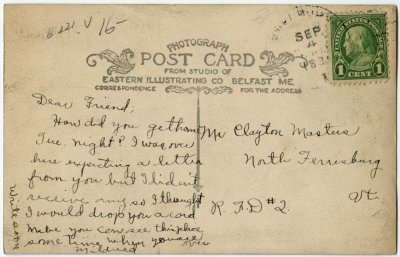 PHOTOGRAPH
POST CARD
FROM STUDIO OF
EASTERN ILLUSTRATING CO. BELFAST ME
CORRESPONDENCE
FOR THE ADDRESS
SEP
4
1 CENT 1
Dear Friend,
How did you get home
Tue. night? I was over
here expecting a letter
from you but I didn't
receive any so I thought
I would drop you a card
make you can see this place
some time when you are over
Mildred
Write soon
Mr Clayton Masters
North Ferrisburg
R.F.D #2. Vt.